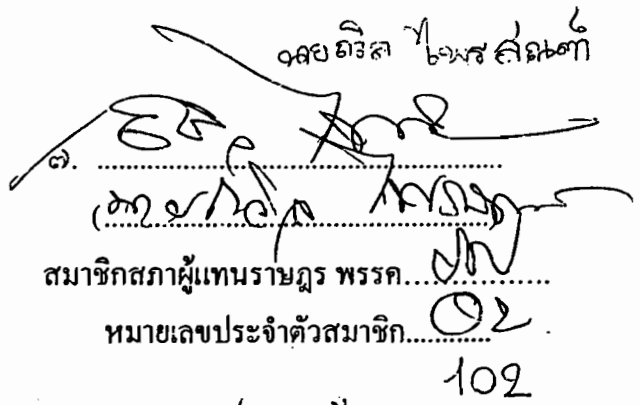 นายถวิล ไพรสณฑ์
๗. ........................................
(นายถวิล ไพรสณฑ์)
สมาชิกสภาผู้แทนราษฎร พรรค.... ปชป
หมายเลขประจำตัวสมาชิก............
102